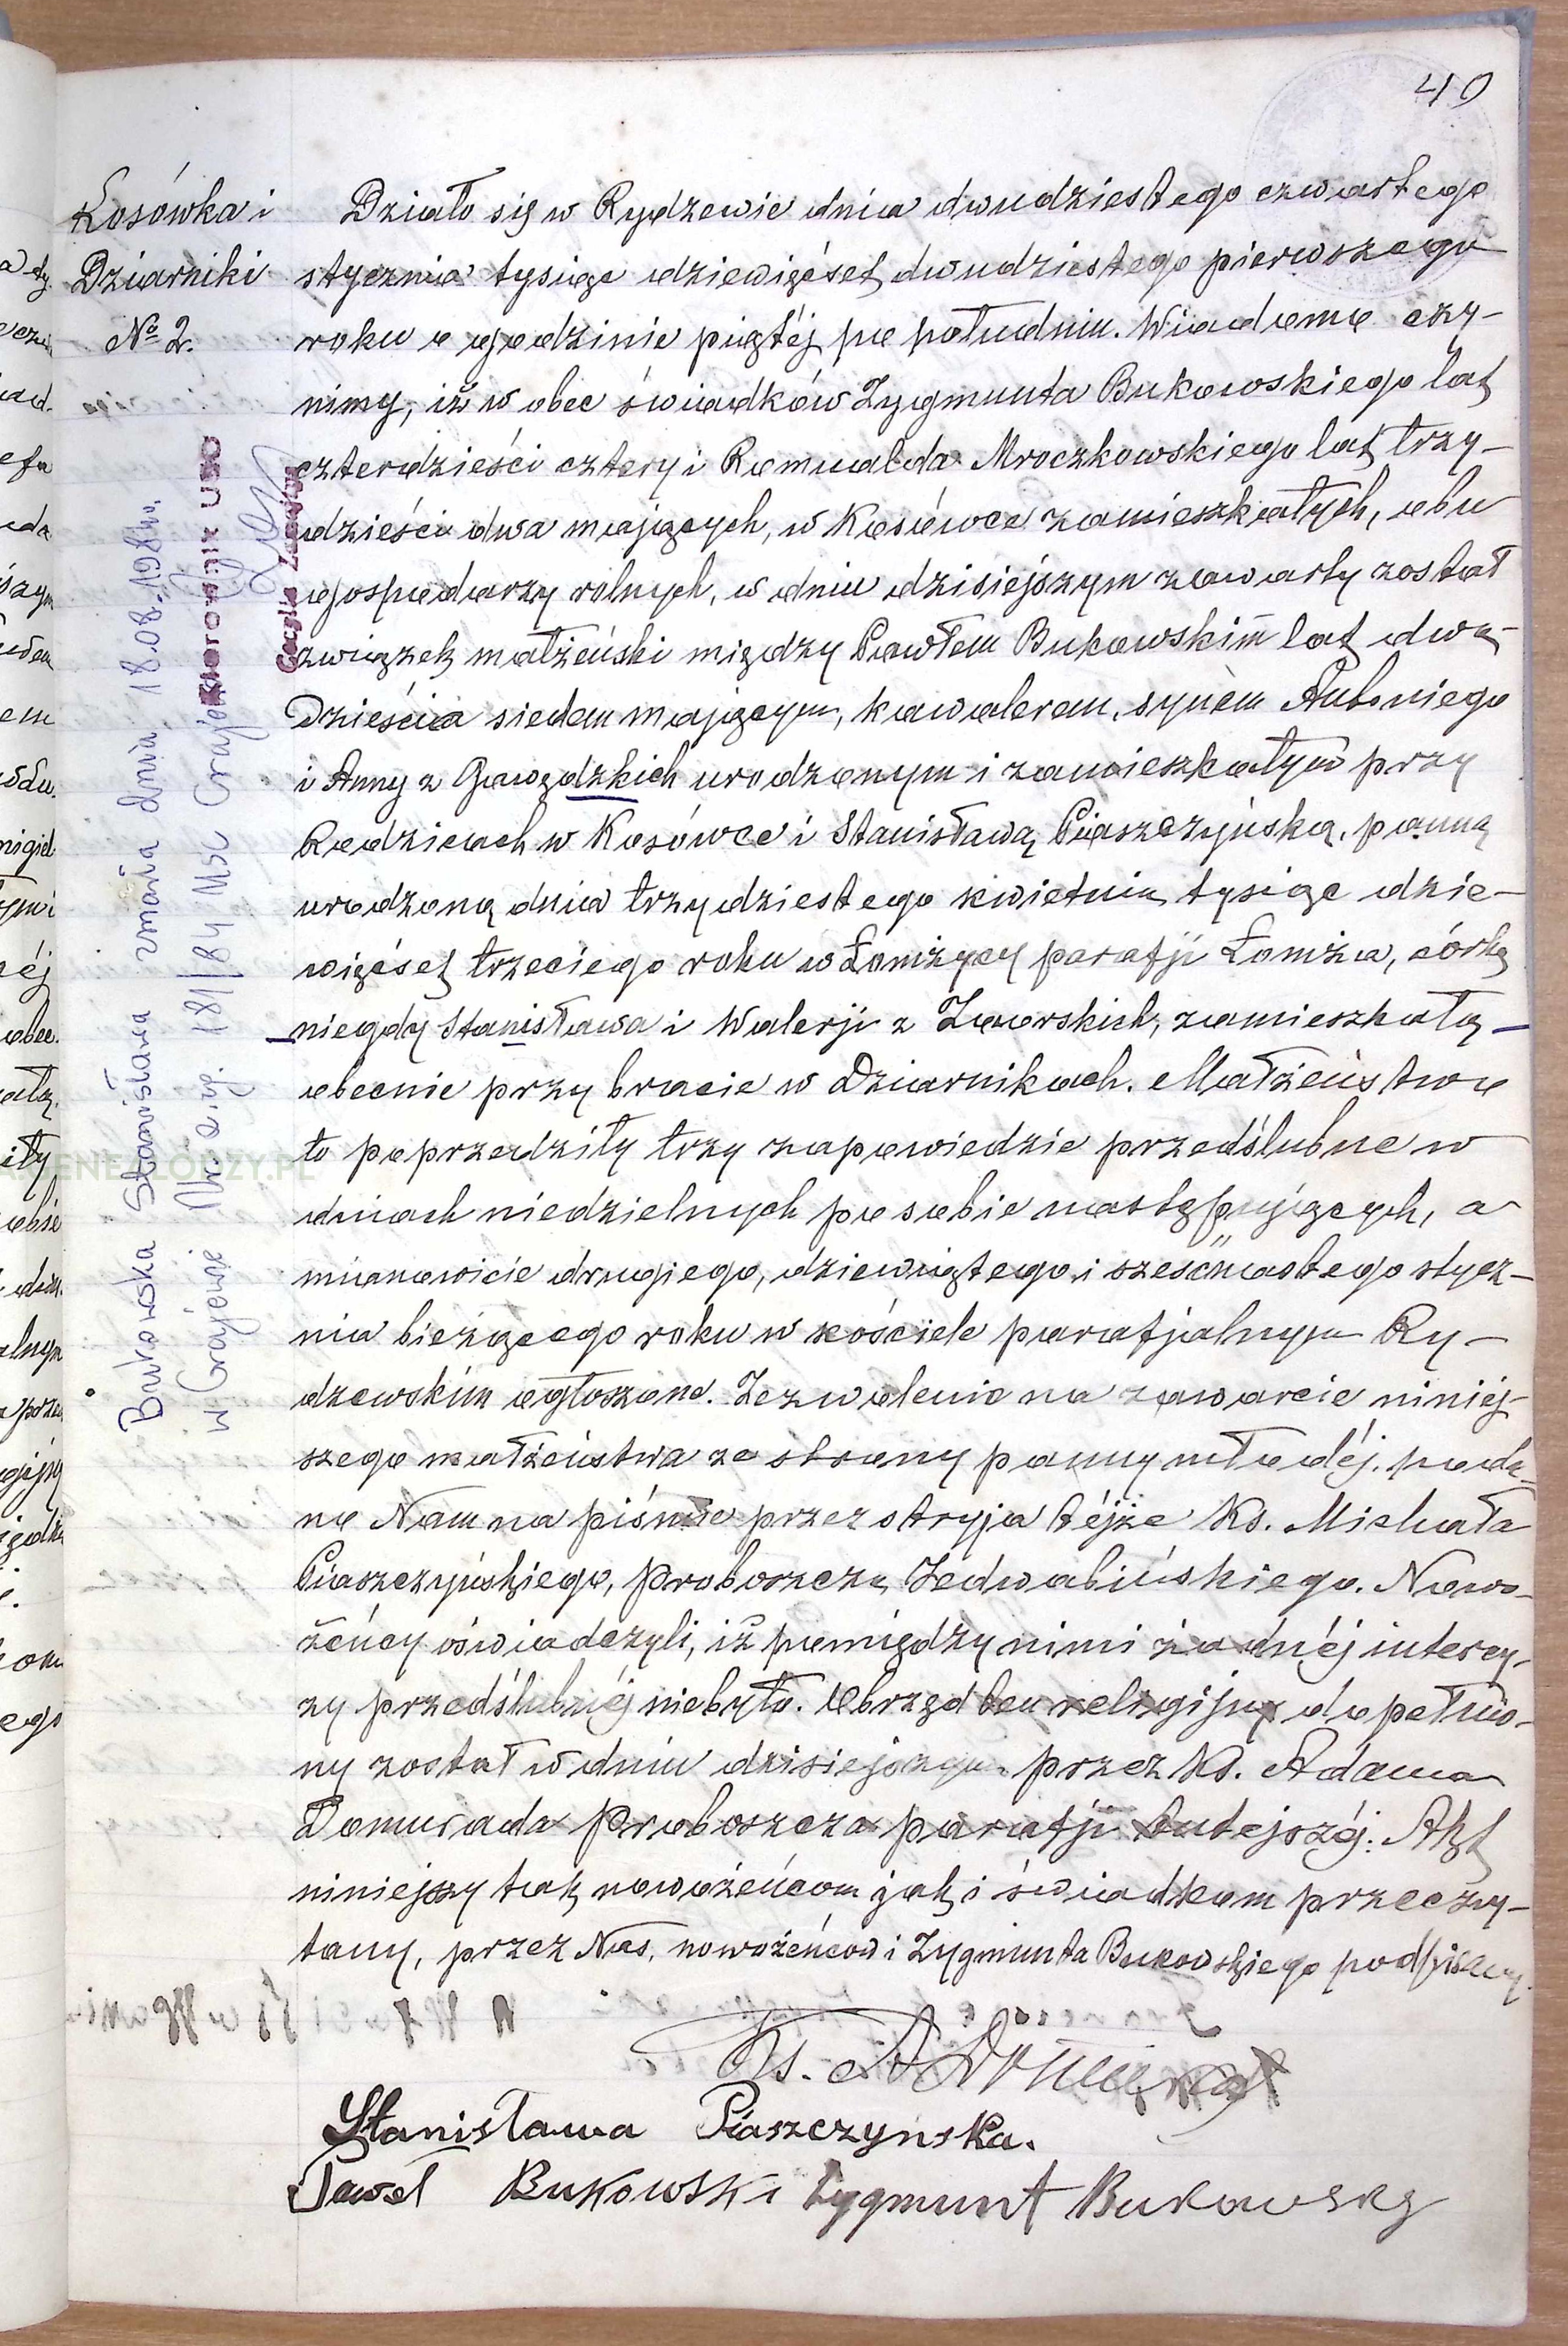 40
Kosówka i
Dziarniki
№ 2.
Działo się w Rydzewie dnia dwudziestego czwartego
stycznia tysiąc dziewięćset dwudziestego pierwszego
roku o godzinie piątéj po południu. Wiadomo czy-
nimy, iż w obec świadków Zygmunta Bukowskiego lat
czterdzieści cztery i Romualda Mroczkowskiego lat trzy-
dzieści dwa mających, w Kosówce zamieszkałych, obu
gospodarzy rolnych, w dniu dzisiejszym zawarty został
związek małżeński między Pawłem Bukowskim lat dwa-
dzieścia siedem mającym, kawalerem, synem Antoniego
i Anny z Gawędzkich urodzonym i zamieszkałym przy
Rodzicach w Kosówce i Stanisławą Piaszczyńską, panną
urodzoną dnia trzydziestego kwietnia tysiąc dzie-
więćset trzeciego roku w Łomżycy parafji Łomża, córką
niegdy Stanisława i Walerji z Zaorskich, zamieszkałą
obecnie przy bracie w Dziarnikach. Małżeństwo
to poprzedziły trzy zapowiedzie przedślubne w
dniach niedzielnych po sobie następujących, a
mianowicie drugiego, dziewiątego i szesnastego stycz-
nia bieżącego roku w kościele parafjalnym Ry-
dzewskim ogłoszone. Zezwolenie na zawarcie niniéj-
szego małżeństwa ze strony panny młodéj, poda-
no Nam na piśmie przez stryja téjże Ks. Michała
Piaszczyńskiego, Proboszcza Jedwabińskiego. Nowo-
żeńcy oświadczyli, iż pomiędzy nimi żadnéj intercy-
zy przedślubnéj niebyło. Obrzęd ten religijny dopełnio-
ny został w dniu dzisiejszym przez Ks. Adama
Domurada Proboszcza parafji tutejszéj. Akt
niniejszy tak nowożeńcom jak i świadkom przeczy-
tany, przez Nas, nowożeńców i Zygmunta Bukowskiego podpisany.
Ks. A Domurad
Stanisława Piaszczyńska.
Paweł Bukowski Zygmunt Bukowsky
Bukowska Stanisława zmarła dnia 18.08.1984r.
w Grajewie Nr. aig. 181/84 USC Grajewo
Kierownik USC
GENEALODZY.PL